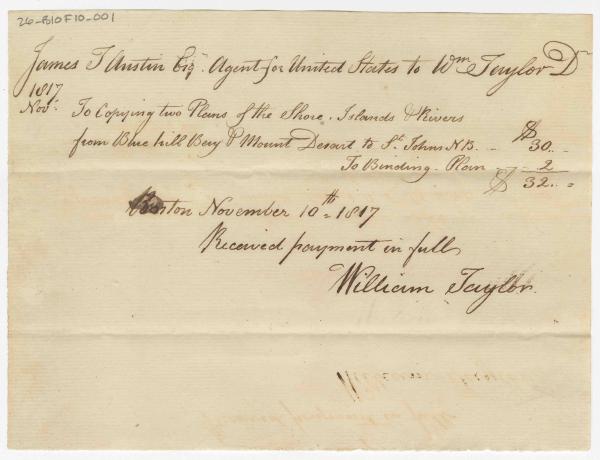 26-B10F10-001
James T Austin Esqr. Agent for United States to Wm Taylor Dr
1817
Novr. To Copying two Plans of the Shore, Islands & Rivers
from Blue hill Bay & Mount Desart to St. Johns N.B. - $ 30..
To Binding Plan - 2
$ 32..
Boston November 10th 1817
Received payment in full
William Taylor.